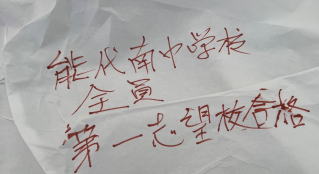 能代南中学校
全員
第一志望校合格